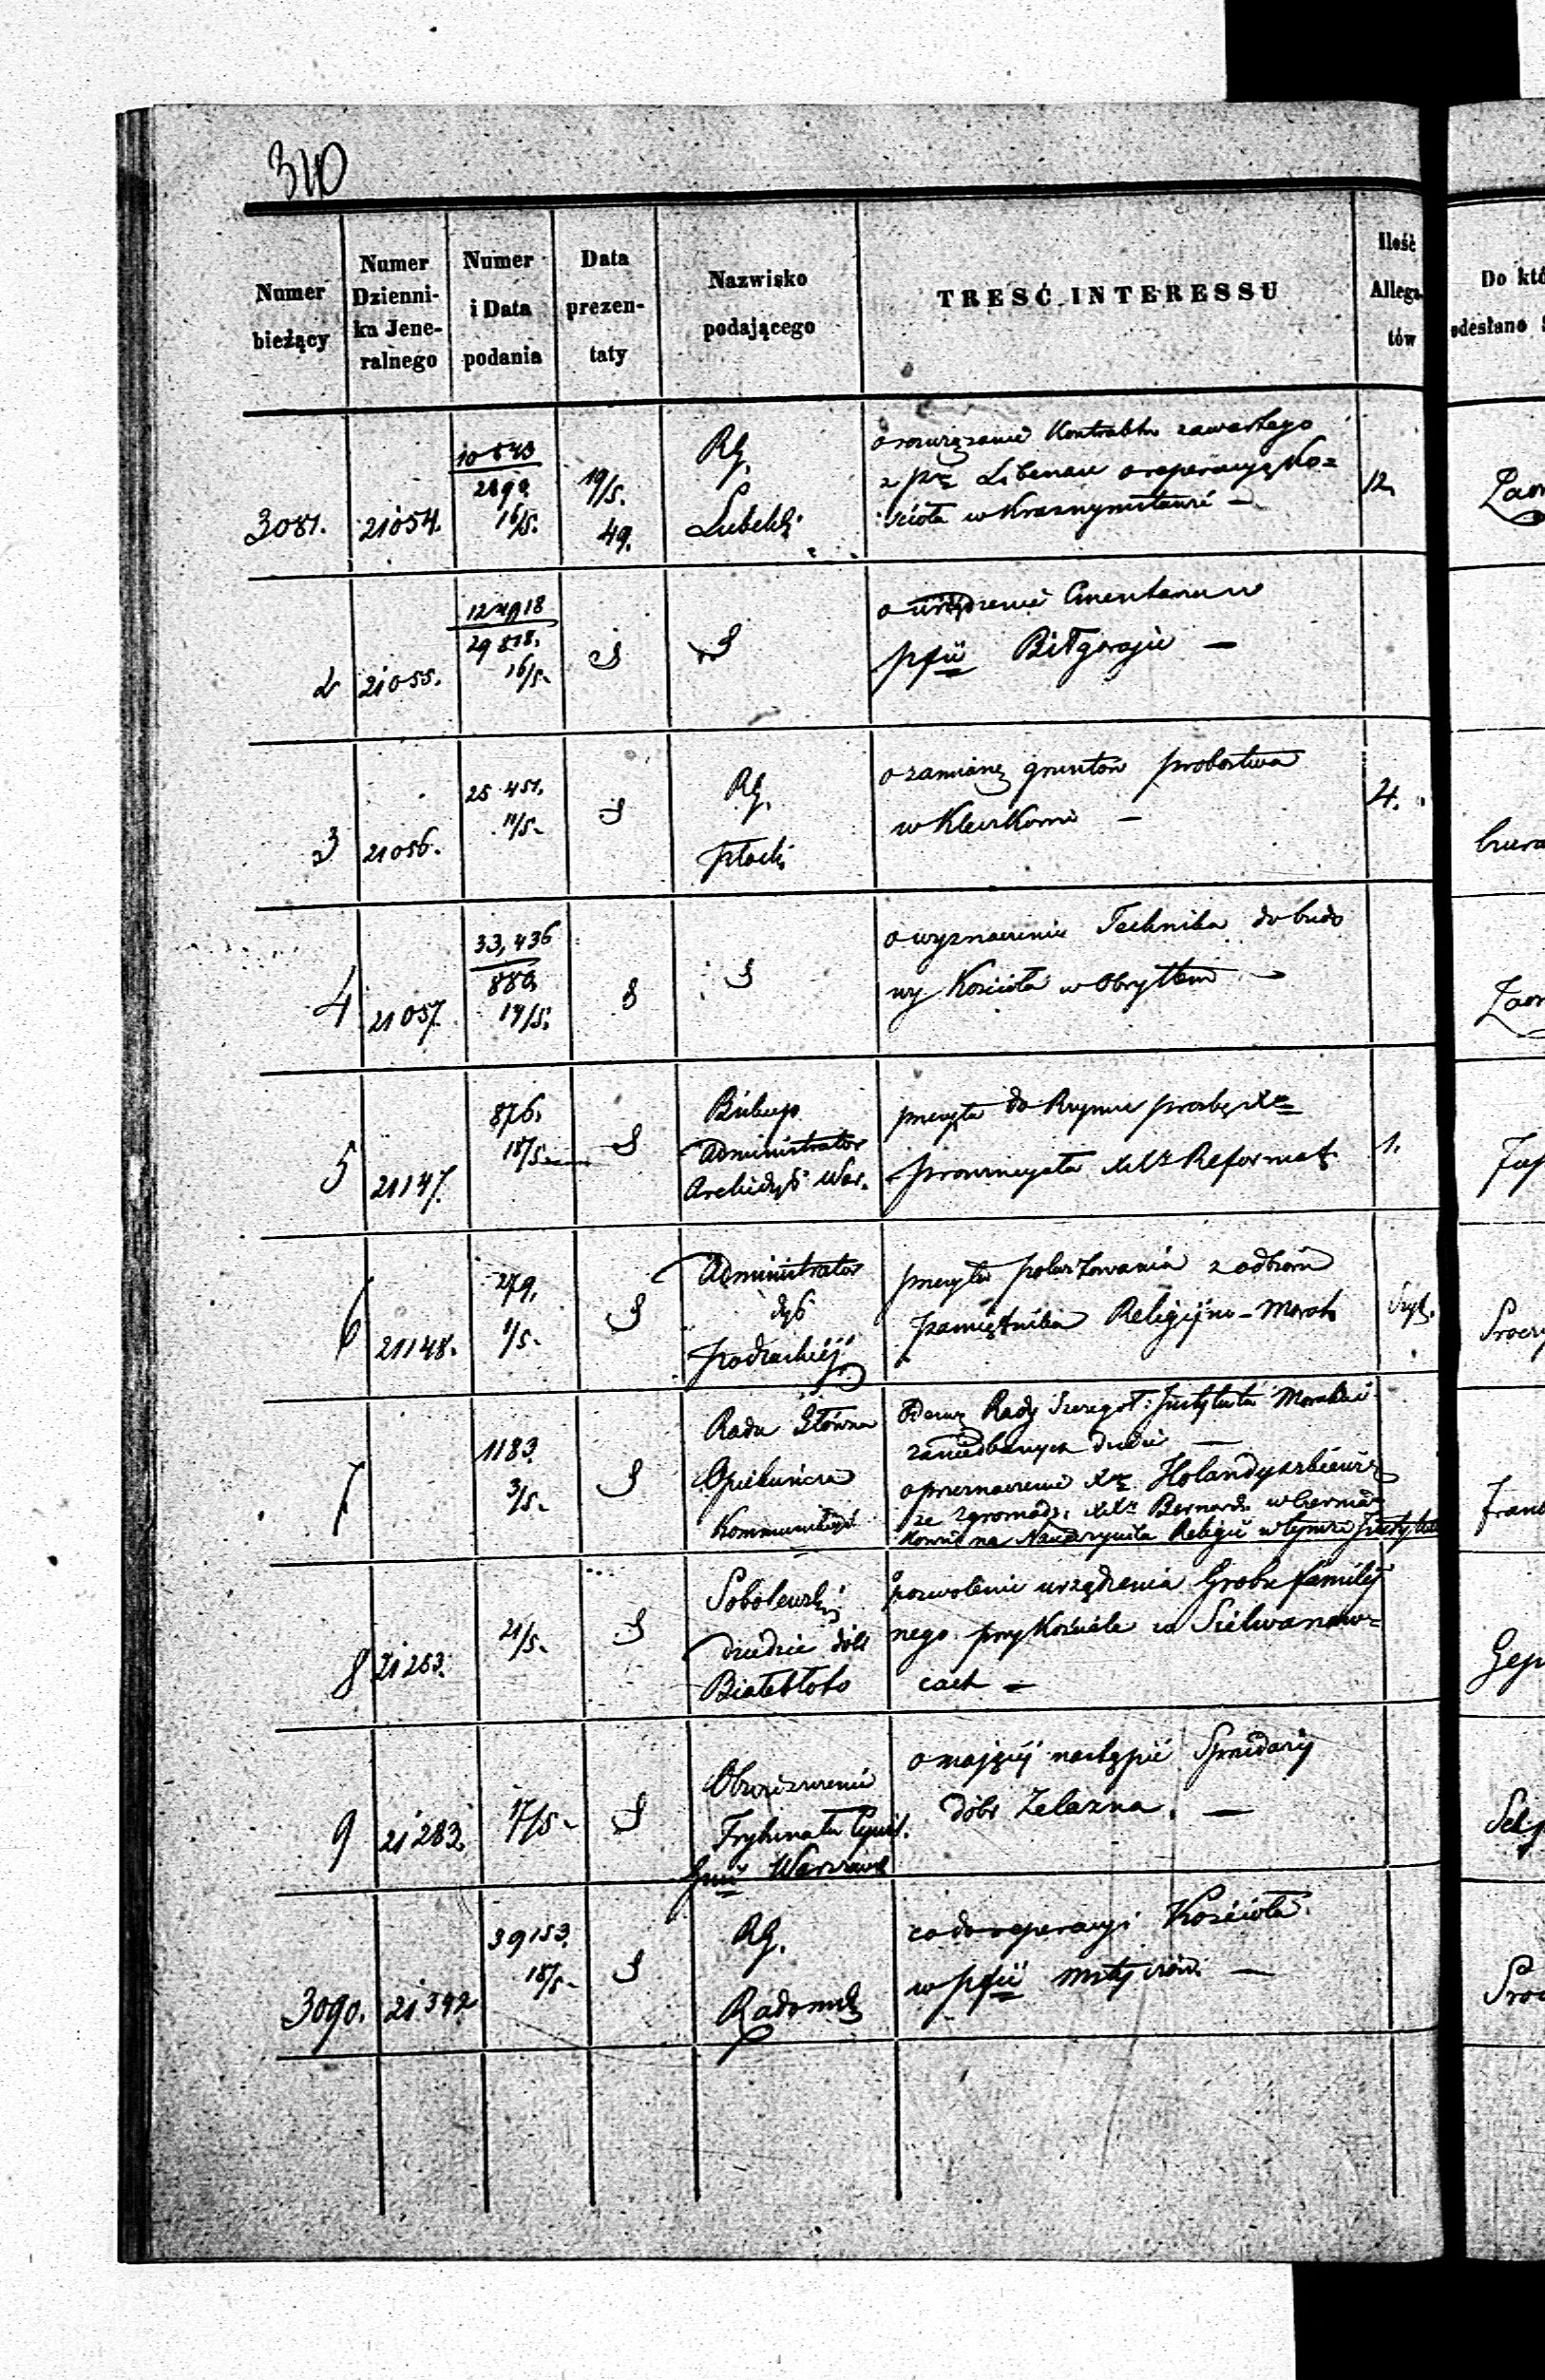 310
Numer bieżący
Numer Dzienni-ka Jene-ralnego
Numer i Data podania
Data prezen-taty
Nazwisko podającego
TRESĆ INTERESSU
Ilość Allega-tów
Do któ
odesłano
3081. 21054. 10843 2890 16/5. 19/5. 49. RG. Lubelski
o rozwiązanie Kontraktu zawartego
z prze Libenau o reperacyą Ko=
ścioła w Krasnymstawie — 12.
2 21055. 29818. 16/5. S S
o urządzenie Cmentarza w
pfii Biłgoraju —
3 21056. 25 451. 11/5. S RG. Płocki
o zamianę gruntów probostwa
w Kleczkowie — 4.
4 21057. 33,436 880 14/5. S S
o wyznaczenie Technika do budo
wy Kościoła w Obrytem —
5 21147. 876. 18/5. S
Biskup
Administrator
Archidyec War.
przesyła do Rzymu prośbę Xa
prowincyała XXr Reformat. 1.
6 21148. 279. 1/5. S
Administrator
dyec
podlaskiej
przesyła pokwitowania z odbioru
pamiętnika Religijno-Moraln
7 1183. 3/5. S
Rada Główna
Opiekuńcza
Odezwę Rady Szczegół: Instytutu Moralnie
zaniedbanych dzieci —
o przeznaczenie Xa Holandyszkiewicz
ze Zgromadz. XXr Bernard. w Czernia=
kowie na Nauczyciela Religii w tymże Instytucie
8 21253. 21/5. S
Sobolewski
dziedzic dóbr
Białebłoto
o pozwolenie urządzenia Grobu familij
nego przy Kościele w Sielwanow=
cach —
9 21283. 17/5. S
Obwieszczenie
Trybunału Cywil.
Gnii Warszawsk
o mającej nastąpić Sprzedaży
dóbr Żelazna. —
3090. 21392 39153. 18/5. S
RG.
Radomski
co do reperacyi Kościoła
w pfii Mstyczów —